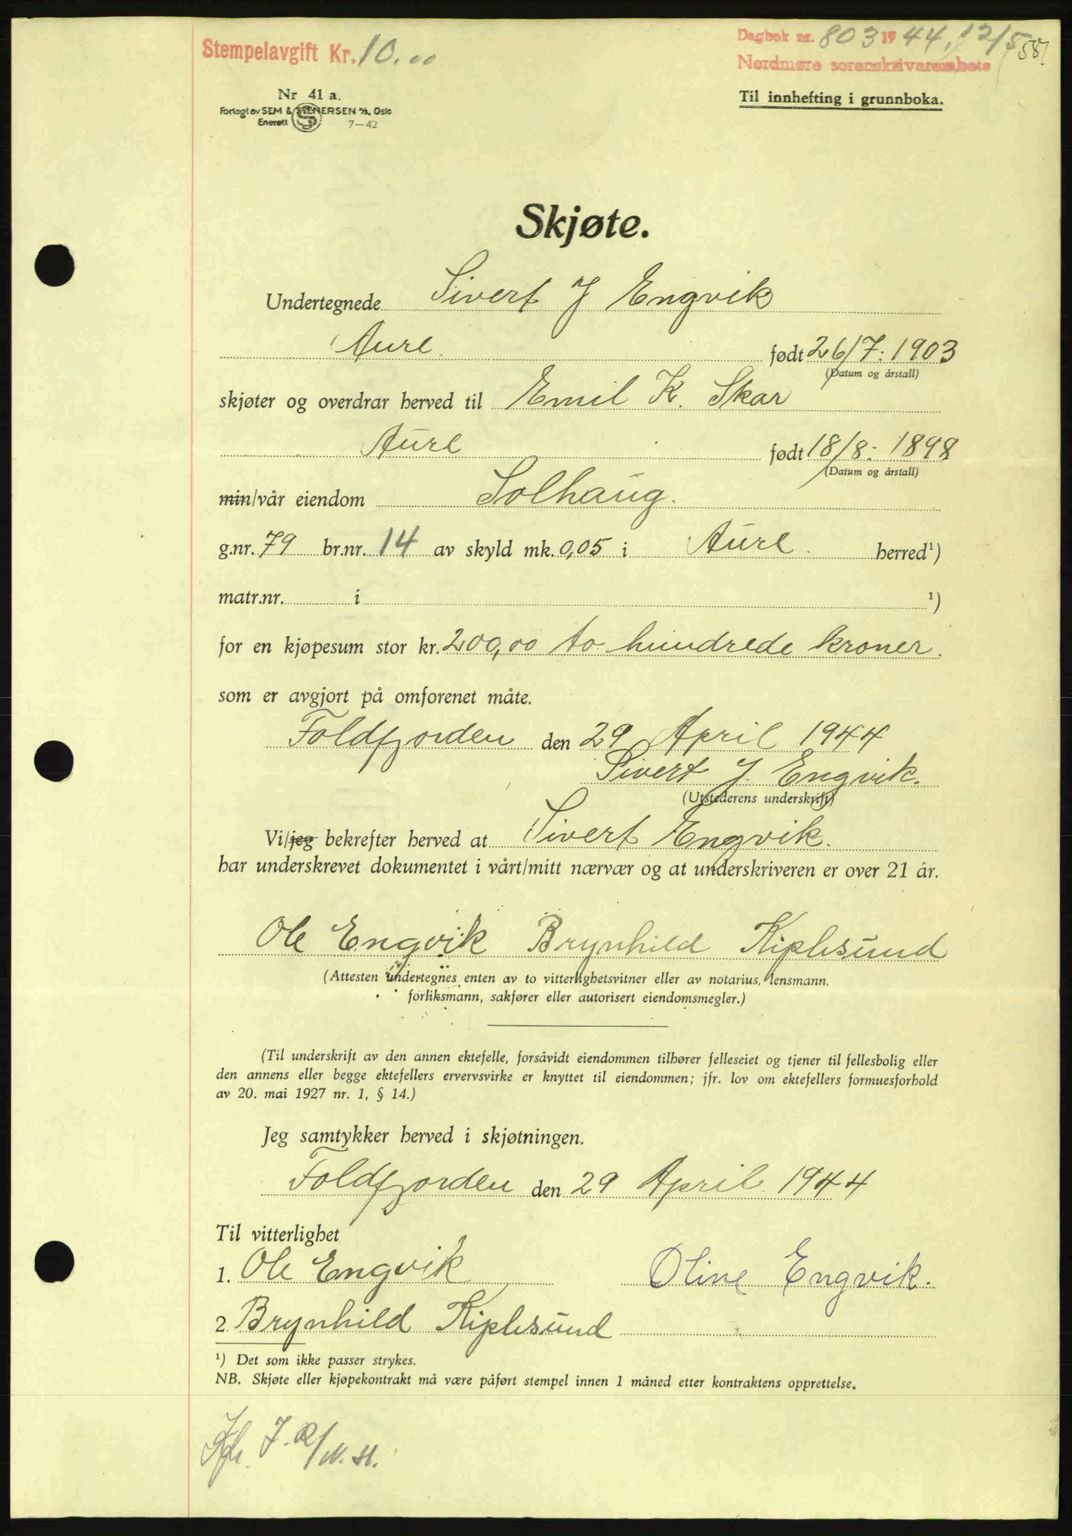 Stempelavgift Kr. 10.00
Dagbok nr. 803 1944, 12/5
58
Nordmøre sorenskriverembete
Nr 41 a.
Forlagt av SEM & STENERSEN A/S, Oslo
Enerett S 7-42
Til innhefting i grunnboka.
Skjøte.
Undertegnede Sivert J Engvik
Aure født 26/7: 1903
(Datum og årstall)
skjøter og overdrar herved til Emil K. Skar
Aure født 18/8: 1898
(Datum og årstall)
min/vår eiendom Solhaug.
g.nr. 79 br.nr. 14 av skyld mk. 0,05 i Aure herred¹)
matr.nr. i ¹)
for en kjøpesum stor kr. 200,00 to hundrede kroner.
som er avgjort på omforenet måte.
Foldfjorden den 29 April 1944
Sivert J. Engvik.
(Utstederens underskrift)
Vi/jeg bekrefter herved at Sivert Engvik.
har underskrevet dokumentet i vårt/mitt nærvær og at underskriveren er over 21 år.
Ole Engvik Brynhild Kiplesund
(Attesten undertegnes enten av to vitterlighetsvitner eller av notarius, lensmann,
forliksmann, sakfører eller autorisert eiendomsmegler.)
(Til underskrift av den annen ektefelle, forsåvidt eiendommen tilhører felleseiet og tjener til fellesbolig eller
den annens eller begge ektefellers ervervsvirke er knyttet til eiendommen; jfr. lov om ektefellers formuesforhold
av 20. mai 1927 nr. 1, § 14.)
Jeg samtykker herved i skjøtningen.
Foldfjorden den 29 April 1944
Til vitterlighet
1. Ole Engvik Oline Engvik.
2. Brynhild Kiplesund
¹) Det som ikke passer strykes.
NB. Skjøte eller kjøpekontrakt må være påført stempel innen 1 måned etter kontraktens opprettelse.